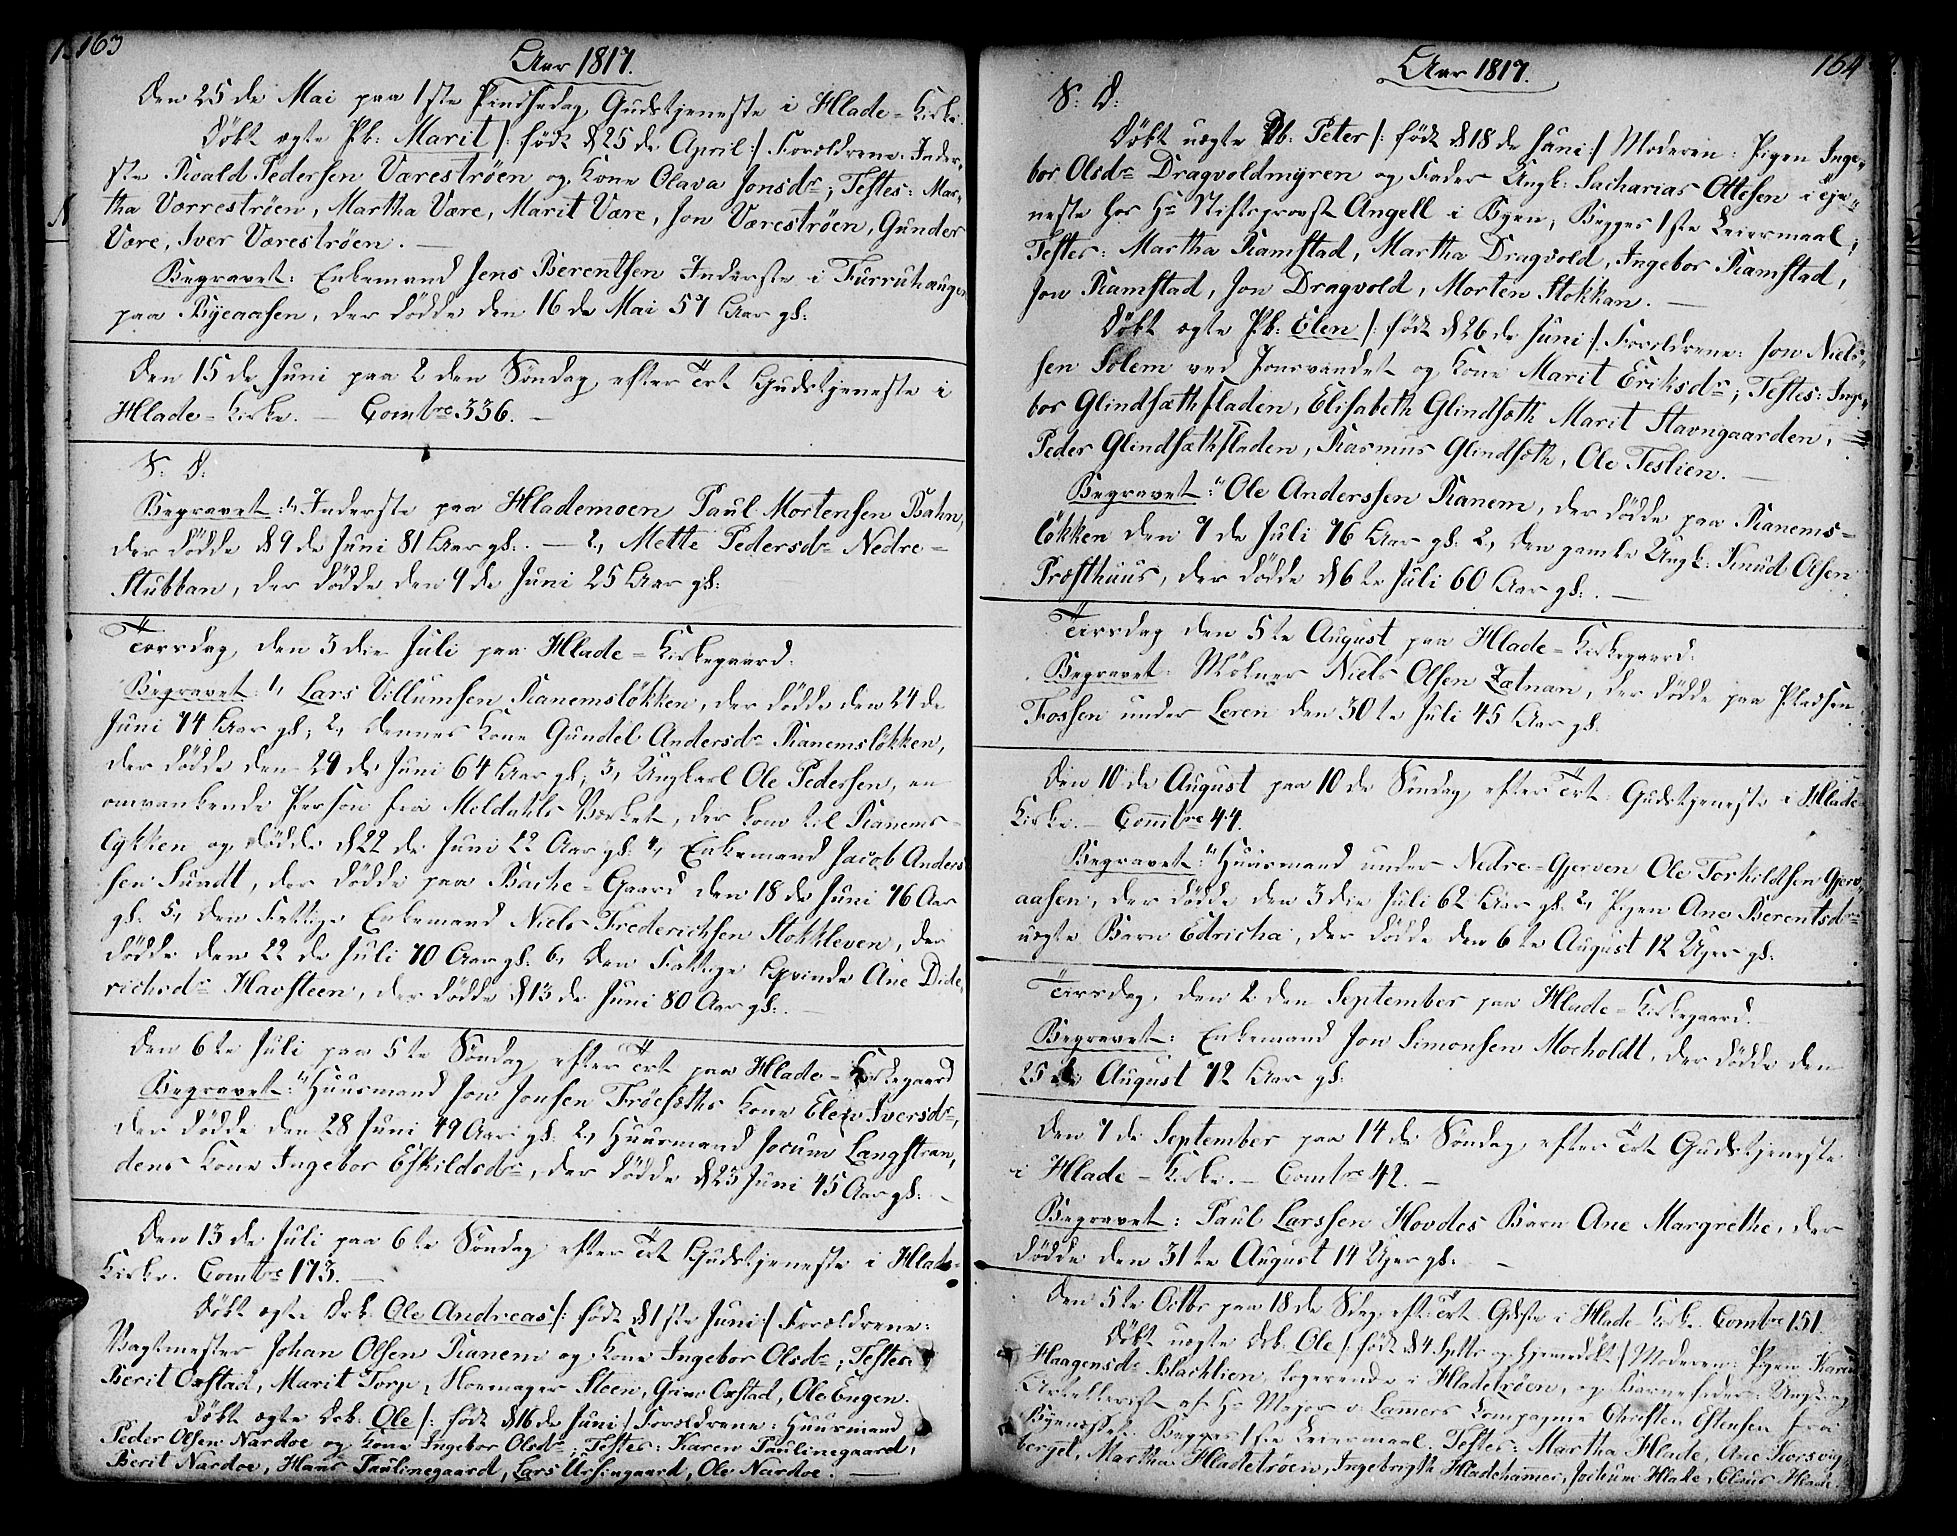 163
Aar 1817.
Den 25 de Mai paa 1ste Pindsedag, Gudstjeneste i Hlade-Kirke.
Döbt ægte Pb: Marit /: född d 25 de April :/ Forældrene: Inder-
ste Roald Pedersen Værestrøen og Kone Olava Jonsdr; Testes: Mar-
tha Værrestrøen, Martha Være, Marit Være, Jon Værestrøen, Gunder
Være, Iver Værestrøen. —
Begravet: Enkemand Jens Berentsen Inderste i Furruhaugen
paa Byeaasen, der dödde den 16 de Mai 57 Aar gl:
Den 15 de Juni paa 2 den Söndag efter Trt Gudstjeneste i
Hlade-Kirke. — Comtre 336. —
S: D:
Begravet: 1, Inderste paa Hlademoen Paul Mortensen Rahn,
der dödde d 9 de Juni 81 Aar gl:. — 2, Mette Pedersdr Nedre-
Stubban, der dödde den 9 de Juni 25 Aar gl:
Torsdag, den 3 die Juli paa Hlade-Kirkegaard.
Begravet: 1, Lars Villumsen Ranemsløkken, der dödde den 24 de
Juni 74 Aar gl; 2, dennes Kone Gundel Andersdr Ranemsløkken,
der dödde den 29 de Juni 64 Aar gl; 3, Ungkarl Ole Pedersen, en
omvankende Person fra Meldahls Værket, der kom til Ranems-
lykken og dödde d 22 de Juni 22 Aar gl: 4, Enkemand Jacob Anders
sen Sundt, der dödde paa Bache-Gaard den 18 de Juni 76 Aar
gl: 5, den Fattige Enkemand Niels Frederichsen Stokkleven, der
dödde den 22 de Juli 70 Aar gl: 6, den Fattige Qvinde Ane Dide-
richsdr Havsteen, der dödde d 13 de Juni 80 Aar gl:. —
Den 6 te Juli paa 5 te Söndag efter Trt paa Hlade-Kirkegaard
Begravet: 1, Huusmand Jon Jonsen Trøesæths Kone Elen Iversdr,
der dödde den 28 Juni 49 Aar gl: 2, Huusmand Jocum Langstran-
dens Kone Ingebor Eskildsdr, der dödde d 23 Juni 45 Aar gl:. —
Den 13 de Juli paa 6 te Söndag efter Trt Gudstjeneste i Hlade-
Kirke. Comtre 173. —
Döbt ægte Drb. Ole Andreas /: född d 1 ste Juni :/ Forældrene:
Vagtmester Johan Olsen Ranem og Kone Ingebor Olsdr; Testes:
Berit Oxstad, Marit Torp, Steen, Oxstad, Ole Engen.
Döbt ægte Drb. Ole /: född d 16 de Juni :/ Forældrene: Huusmand
Peder Olsen Nardoe og Kone Ingebor Olsdr; Testes: Karen Paulinegaard,
Berit Nardoe, Hans Paulinegaard, Lars Ursingaard, Ole Nardoe. —
164
Aar 1817.
S: D:
Döbt uægte Db. Peter /: född d 18 de Juni :/ Moderen: Pigen Inge-
bor Olsdr Dragvoldmyren og Fader Ungk: Sacharias Ottesen i Tje-
neste hos Hr Stiftsprovst Angell i Byen; Begges 1 ste Leiermaal;
Testes: Martha Ramstad, Martha Dragvold, Ingebor Ramstad,
Jon Ramstad, Jon Dragvold, Morten Stokkan. —
Döbt ægte Pb: Elen /: född d 26 de Juni :/ Forældrene: Jon Niels-
sen Solem ved Jonsvandet og Kone Marit Eriksdr; Testes: Inge-
bor Glindsæthfladen, Elisabeth Glindsæth Marit Stavngaarden,
Peder Glindsæthfladen, Rasmus Glindsæth, Ole Teslien. —
Begravet: 1, Ole Anderssen Ranem, der dödde paa Ranems-
løkken den 7 de Juli 76 Aar gl: 2, den gamle Ungk: Knud Olsen
Præsthuus, der dödde d 6 te Juli 60 Aar gl:. —
Tirsdag den 5 te August paa Hlade-Kirkegaard:
Begravet: Mölner Niels Olsen Zatnan, der dödde paa Pladsen
Fossen under Leren den 30 te Juli 45 Aar gl.
Den 10 de August paa 10 de Söndag efter Trt. Gudstjeneste i Hlade-
Kirke. — Comtre 44.
Begravet: 1, Huusmand under Nedre-Gjerven Ole Torkildsen Gjerv-
aasen, der dödde den 3 die Juli 62 Aar gl: 2, Pigen Ane Berentsdrs
uægte Barn Edricha, der dödde den 6 te August 12 Uger gl:
Tirsdag, den 2 den September paa Hlade-Kirkegaard.
Begravet: Enkemand Jon Simonsen Moeholdt, der dödde den
25 de August 72 Aar gl:
Den 7 de September paa 14 de Söndag efter Trt Gudstjeneste
i Hlade-Kirke. — Comtre 42. —
Begravet: Paul Larssen Hovdes Barn Ane Margrethe, der
dödde den 31 te August 14 Uger gl: —
Den 5 te Octbr paa 18 de Sdag eft: Trt. Gdste i Hlade-Kirke. Comtre 151.
Döbt uægte Drb. Ole /: född d 4 Septbr og hjemmedöbt :/ Moderen: Pigen Karen
Haagensdr Blachlien, logerende i Hladetrøen, og Barnefader: Ungk. og
af Hr Major v: Lamers Compagnie Christen Estensen fra
Byenæsset. Begges 1 ste Leiermaal. Testes: Martha Hlade, Ane Korsvig-
berget, Martha Hladetrøen, Ingebrigt Hladehammer, Jochum Hlade, Claus Hlade.